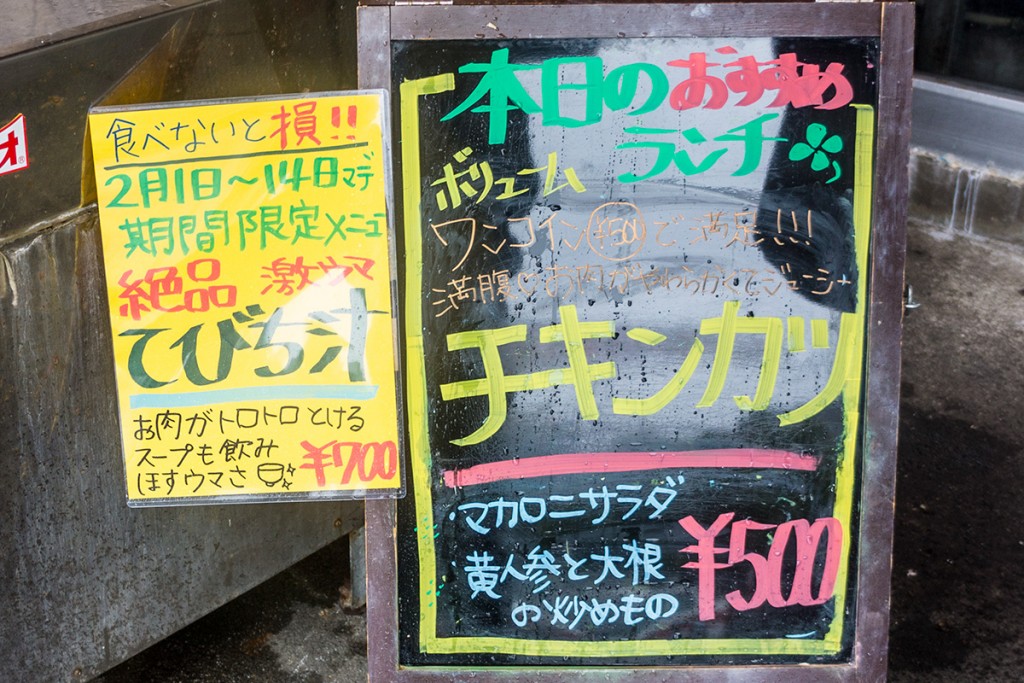 食べないと損!!
2月1日~14日マデ
期間限定メニュー
絶品 激ウマ
てびち汁
お肉がトロトロとける
スープも飲み
ほすウマさ
¥700
本日のおすすめ
ランチ
ボリューム
ワンコイン¥500で満足!!!
満腹 お肉がやわらかくてジューシー
チキンカツ
・マカロニサラダ
・黄人参と大根
お炒めもの
¥500
オ